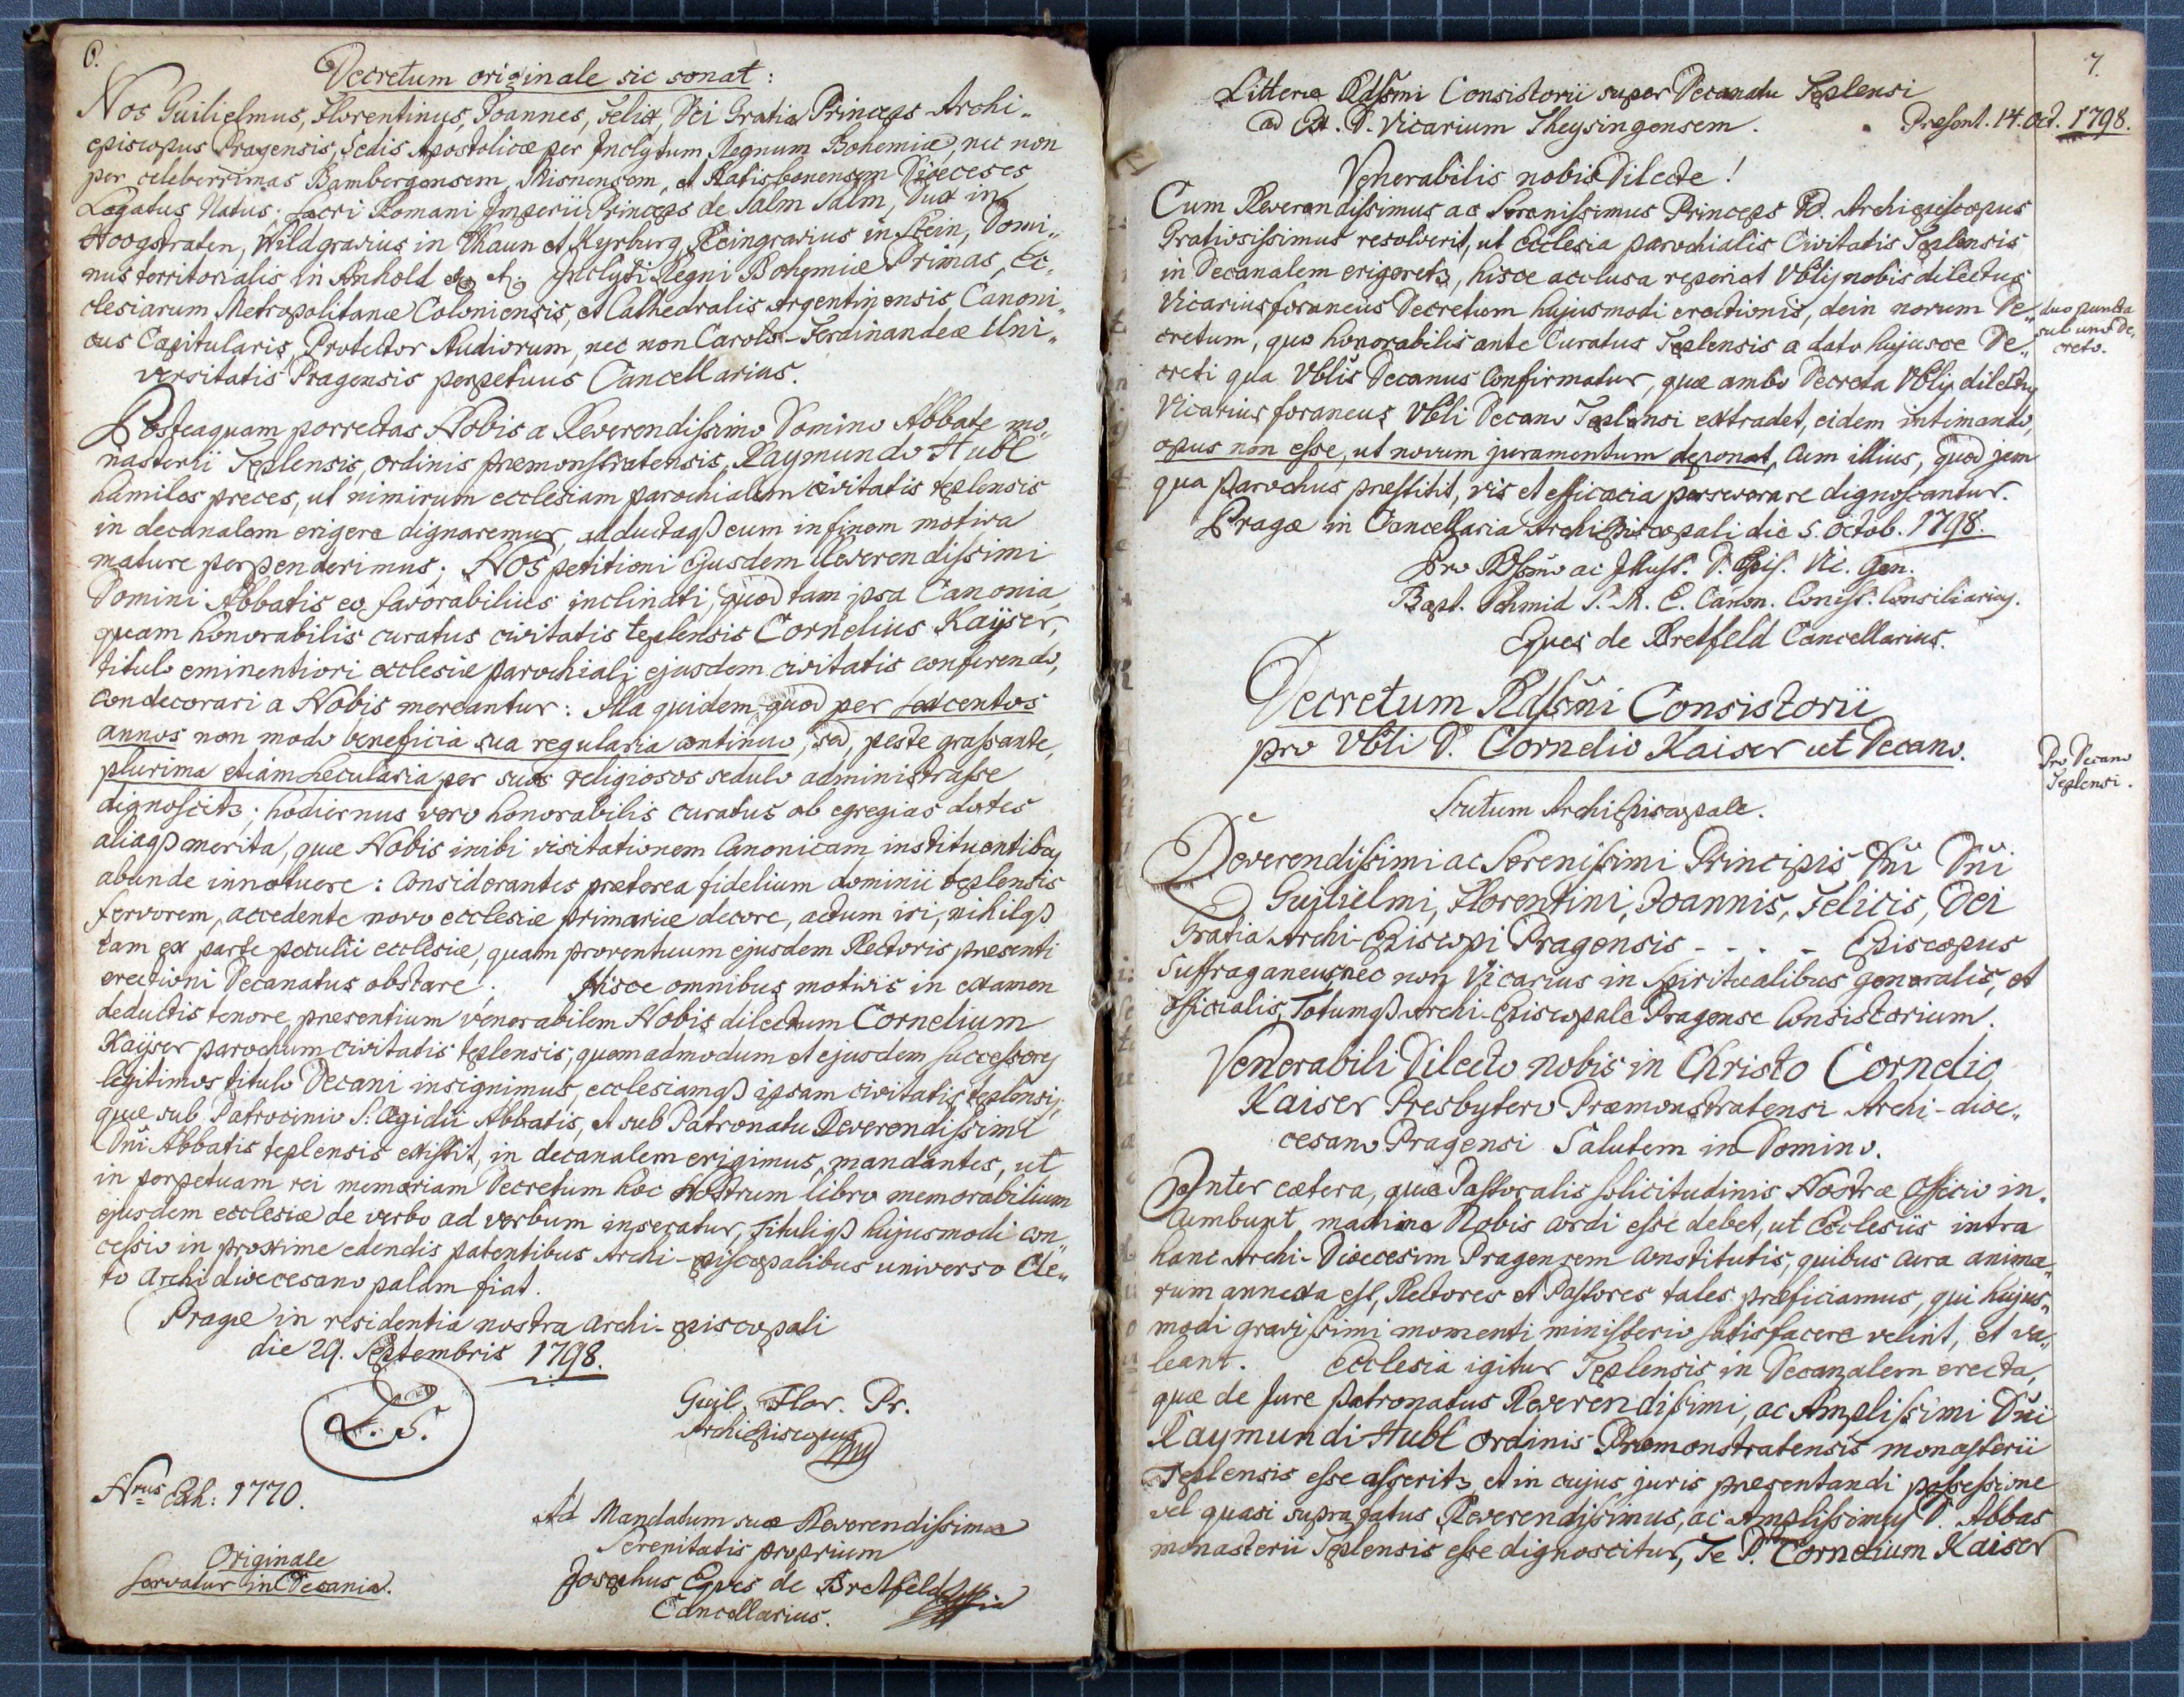 6.
Decretum originale sic sonat:
Nos Guilielmus, Florentinus, Joannes, Felix, Dei Gratia Princeps Archi-
episcopus Pragensis, Sedis Apostolicæ per Inclytum Regnum Bohemiæ, nec non
per celeberrimas Bambergensem, Misnensem, et Ratisbonensem Dioeceses
Legatus Natus; Sacri Romani Imperii Princeps de Salm Salm, Dux in
Hoogstraten, Wildgravius in Thaun et Kyrburg, Reingravius in Stein, Domi-
nus territorialis in Anhold etc. etc. Inclyti Regni Bohemiæ Primas, Ec-
clesiarum Metropolitanæ Coloniensis, et Cathedralis Argentinensis Canoni-
cus Capitularis, Protector Studiorum, nec non Carolo-Ferdinandeæ Uni-
versitatis Pragensis perpetuus Cancellarius.
Posteaquam porrectas Nobis a Reverendissimo Domino Abbate mo-
nasterii Teplensis, ordinis præmonstratensis, Raymundo Hubl
humiles preces, ut nimirum ecclesiam parochialem civitatis teplensis
in decanalem erigere dignaremur, adductaqß eum in finem motiva
mature perpenderimus; Nos petitioni ejusdem Reverendissimi
Domini Abbatis eo favorabilius inclinati, quod tam ipsa Canonia,
quam honorabilis curatus civitatis teplensis Cornelius Kaÿser,
titulo eminentiori ecclesiæ parochiali ejusdem civitatis conferendo,
condecorari a Nobis mereantur: Illa quidem, quod per sexcentos
annos non modo beneficia sua regularia continuo, sed, peste grassante,
plurima etiam secularia per suos religiosos sedulo administrasse
dignoscitr; hodiernus vero honorabilis curatus ob egregias dotes
aliaqß merita, quæ Nobis inibi visitationem Canonicam instituentibus
abunde innotuere: Considerantes præterea fidelium dominii teplensis
fervorem, accedente novo ecclesiæ primariæ decore, actum iri, nihilqß
tam ex parte peculii ecclesiæ, quam proventuum ejusdem Rectoris præsenti
erectioni Decanatus obstare; Hisce omnibus motivis in examen
deductis tenore præsentium venerabilem Nobis dilectum Cornelium
Kaÿser parochum civitatis teplensis, quemadmodum et ejusdem successores
legitimos titulo Decani insignimus, ecclesiamqß ipsam civitatis teplensis,
quæ sub Patrocinio S: Ægidii Abbatis, et sub Patronatu Reverendissimi
Dñi Abbatis teplensis existit, in decanalem erigimus, mandantes, ut
in perpetuam rei memoriam Decretum hoc Nostrum libro memorabilium
ejusdem ecclesiæ de verbo ad verbum inseratur, Tituliqß hujusmodi con-
cessio in proxime edendis patentibus Archi-episcopalibus universo Cle-
ro Archidioecesano palam fiat.
Pragæ in residentia nostra Archi-episcopali
die 29. Septembris 1798.
L. S.
Guil. Flor. Pr.
ArchiEpiscopus
Nrus Exh: 1770.
Ad Mandatum suæ Reverendissimæ
Serenitatis proprium
Josephus Eques de Bretfeld
Cancellarius.
Originale
servatur in Decania.
7.
Litteræ Rdssmi Consistorii super Decanatu Teplensi
ad Ex. D. Vicarium Theysingensem.
Præsent. 14. Oct. 1798.
Venerabilis nobis Dilecte!
Cum Reverendissimus ac Serenissimus Princeps D. Archiepiscopus
Gratiosissimus resolverit, ut Ecclesia parochialis Civitatis Teplensis
in Decanalem erigeretr, hisce acclusa reperiet Vblis nobis dilectus
Vicarius foraneus Decretum hujusmodi erectionis, dein novum De-
cretum, quo honorabilis ante Curatus Teplensis a dato hujusce De-
creti qua Vblis Decanus Confirmatur, quæ ambo Decreta Vblis dilectus
Vicarius foraneus Vbli Decano Teplensi extradet, eidem intimando,
opus non esse, ut novum juramentum deponat, Cum illius, quod jam
qua Parochus præstitit, vis et efficacia perseverare dignoscantur.
Pragæ in Cancellaria ArchiEpiscopali die 5. Octob. 1798.
Pro Rdssmo ac Illust. D. Epis. Vic. Gen.
Bapt. Schmid S. M. E. Canon. Consist. Consiliarius.
Eques de Bretfeld Cancellarius.
duo puncta
sub uno De-
creto.
Decretum Rdssmi Consistorii
pro Vbli D. Cornelio Kaiser ut Decano.
Pro Decano
Teplensi.
Scutum ArchiEpiscopale.
Reverendissimi ac Serenissimi Principis Dñi Dñi
Guilielmi, Florentini, Joannis, Felicis, Dei
Gratia Archi-Episcopi Pragensis - - - - Episcopus
Suffraganeus, nec non Vicarius in Spiritualibus generalis, et
Officialis, Totumqß Archi-Episcopale Pragense Consistorium.
Venerabili Dilecto nobis in Christo Cornelio
Kaiser Presbytero Præmonstratensi Archi-dioe-
cesano Pragensi Salutem in Domino.
Inter cætera, quæ Pastoralis solicitudinis Nostræ officio in-
cumbunt, maxime Nobis cordi esse debet, ut Ecclesiis intra
hanc Archi-Dioecesim Pragensem constitutis, quibus cura anima-
rum annexa est, Rectores et Pastores tales præficiamus, qui hujus-
modi gravissimi momenti ministerio satisfacere velint, et va-
leant. Ecclesia igitur Teplensis in Decanalem erecta,
quæ de Jure patronatus Reverendissimi, ac Amplissimi Dñi
Raymundi Hubl Ordinis Præmonstratensis monasterii
Teplensis esse asseritr, et in cujus juris præsentandi possessione
vel quasi supra fatus Reverendissimus, ac Amplissimus D. Abbas
monasterii Teplensis esse dignoscitur, Te P. Cornelium Kaiser